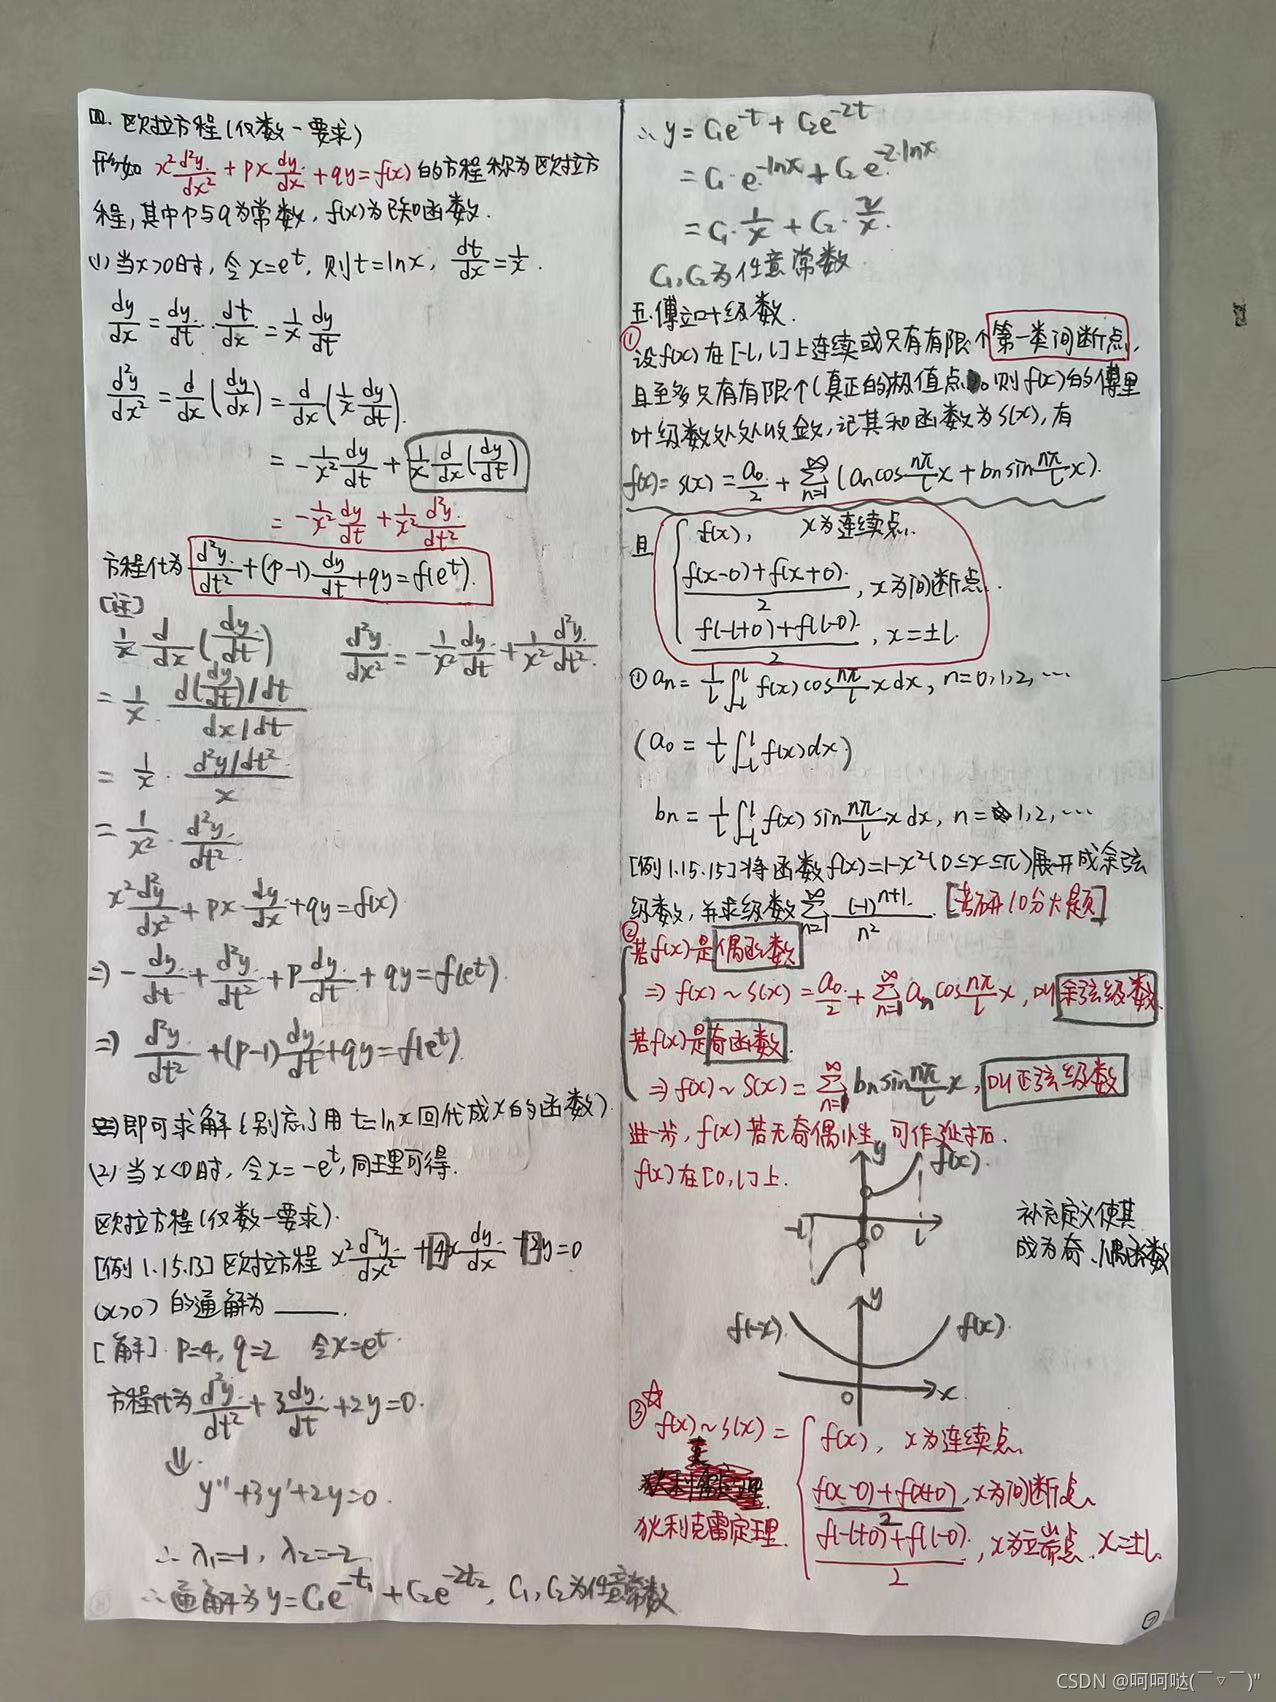 四. 欧拉方程(仅数一要求)
形如 x²d²y/dx² + px dy/dx + qy = f(x) 的方程称为欧拉方
程,其中p与q为常数, f(x)为已知函数.
(1) 当x>0时, 令 x=e^t, 则 t=lnx, dt/dx = 1/x.
dy/dx = dy/dt · dt/dx = 1/x dy/dt
d²y/dx² = d/dx(dy/dx) = d/dx(1/x dy/dt)
= -1/x² dy/dt + 1/x d/dx(dy/dt)
= -1/x² dy/dt + 1/x² d²y/dt²
方程化为 d²y/dt² + (p-1)dy/dt + qy = f(e^t).
[注]
1/x d/dx(dy/dt) d²y/dx² = -1/x² dy/dt + 1/x² d²y/dt²
= 1/x · d(dy/dt)/dt / dx/dt
= 1/x · d²y/dt² / x
= 1/x² · d²y/dt²
x² d²y/dx² + px · dy/dx + qy = f(x)
⇒ -dy/dt + d²y/dt² + p dy/dt + qy = f(e^t)
⇒ d²y/dt² + (p-1)dy/dt + qy = f(e^t)
即可求解(别忘了用 t=lnx 回代成x的函数).
(2) 当x<0时, 令x=-e^t, 同理可得.
欧拉方程(仅数一要求).
[例1.15.13] 欧拉方程 x² d²y/dx² + 4x dy/dx + 2y = 0
(x>0) 的通解为 ____.
[解] p=4, q=2 令x=e^t.
方程化为 d²y/dt² + 3dy/dt + 2y = 0.
⇓
y''+3y'+2y=0.
∴ λ₁=-1, λ₂=-2
∴ 通解为 y=C₁e^-t₁ + C₂e^-2t₂, C₁, C₂为任意常数
∴ y = C₁e^-t + C₂e^-2t
= C₁·e^-lnx + C₂e^-2·lnx
= C₁·1/x + C₂·2/x.
C₁, C₂为任意常数
五. 傅立叶级数.
① 设f(x)在[-l, l]上连续或只有有限个第一类间断点,
且至多只有有限个(真正的)极值点。则f(x)的傅里
叶级数处处收敛, 记其和函数为S(x), 有
f(x) = S(x) = a₀/2 + ∑n=1^∞ (aₙcos nπ/l x + bₙsin nπ/l x).
且 { f(x), x为连续点.
f(x-0)+f(x+0)/2, x为间断点.
f(-l+0)+f(l-0)/2, x=±l.
① aₙ = 1/l ∫-l^l f(x)cos nπ/l x dx, n=0,1,2,…
(a₀ = 1/l ∫-l^l f(x)dx)
bₙ = 1/l ∫-l^l f(x) sin nπ/l x dx, n=1,2,…
[例1.15.15] 将函数f(x)=1-x²(0≤x≤π)展开成余弦
级数, 并求级数 ∑n=1^∞ (-1)^n+1/n². [考研10分大题]
② { 若f(x)是偶函数
⇒ f(x) ~ S(x) = a₀/2 + ∑n=1^∞ aₙcos nπ/l x, 叫余弦级数
若f(x)是奇函数
⇒ f(x) ~ S(x) = ∑n=1^∞ bₙsin nπ/l x, 叫正弦级数
进一步, f(x)若无奇偶性, 可作延拓.
f(x)在[0, l]上.
y f(x)
-l 0 l
补充定义使其
成为奇、偶函数
y
f(-x) f(x)
0 x
③ ☆ f(x) ~ S(x) = { f(x), x为连续点.
f(x-0)+f(x+0)/2, x为间断点
狄利克雷定理. f(-l+0)+f(l-0)/2, x为端点 x=±l.
⑦
CSDN @呵呵哒(￣▽￣)"